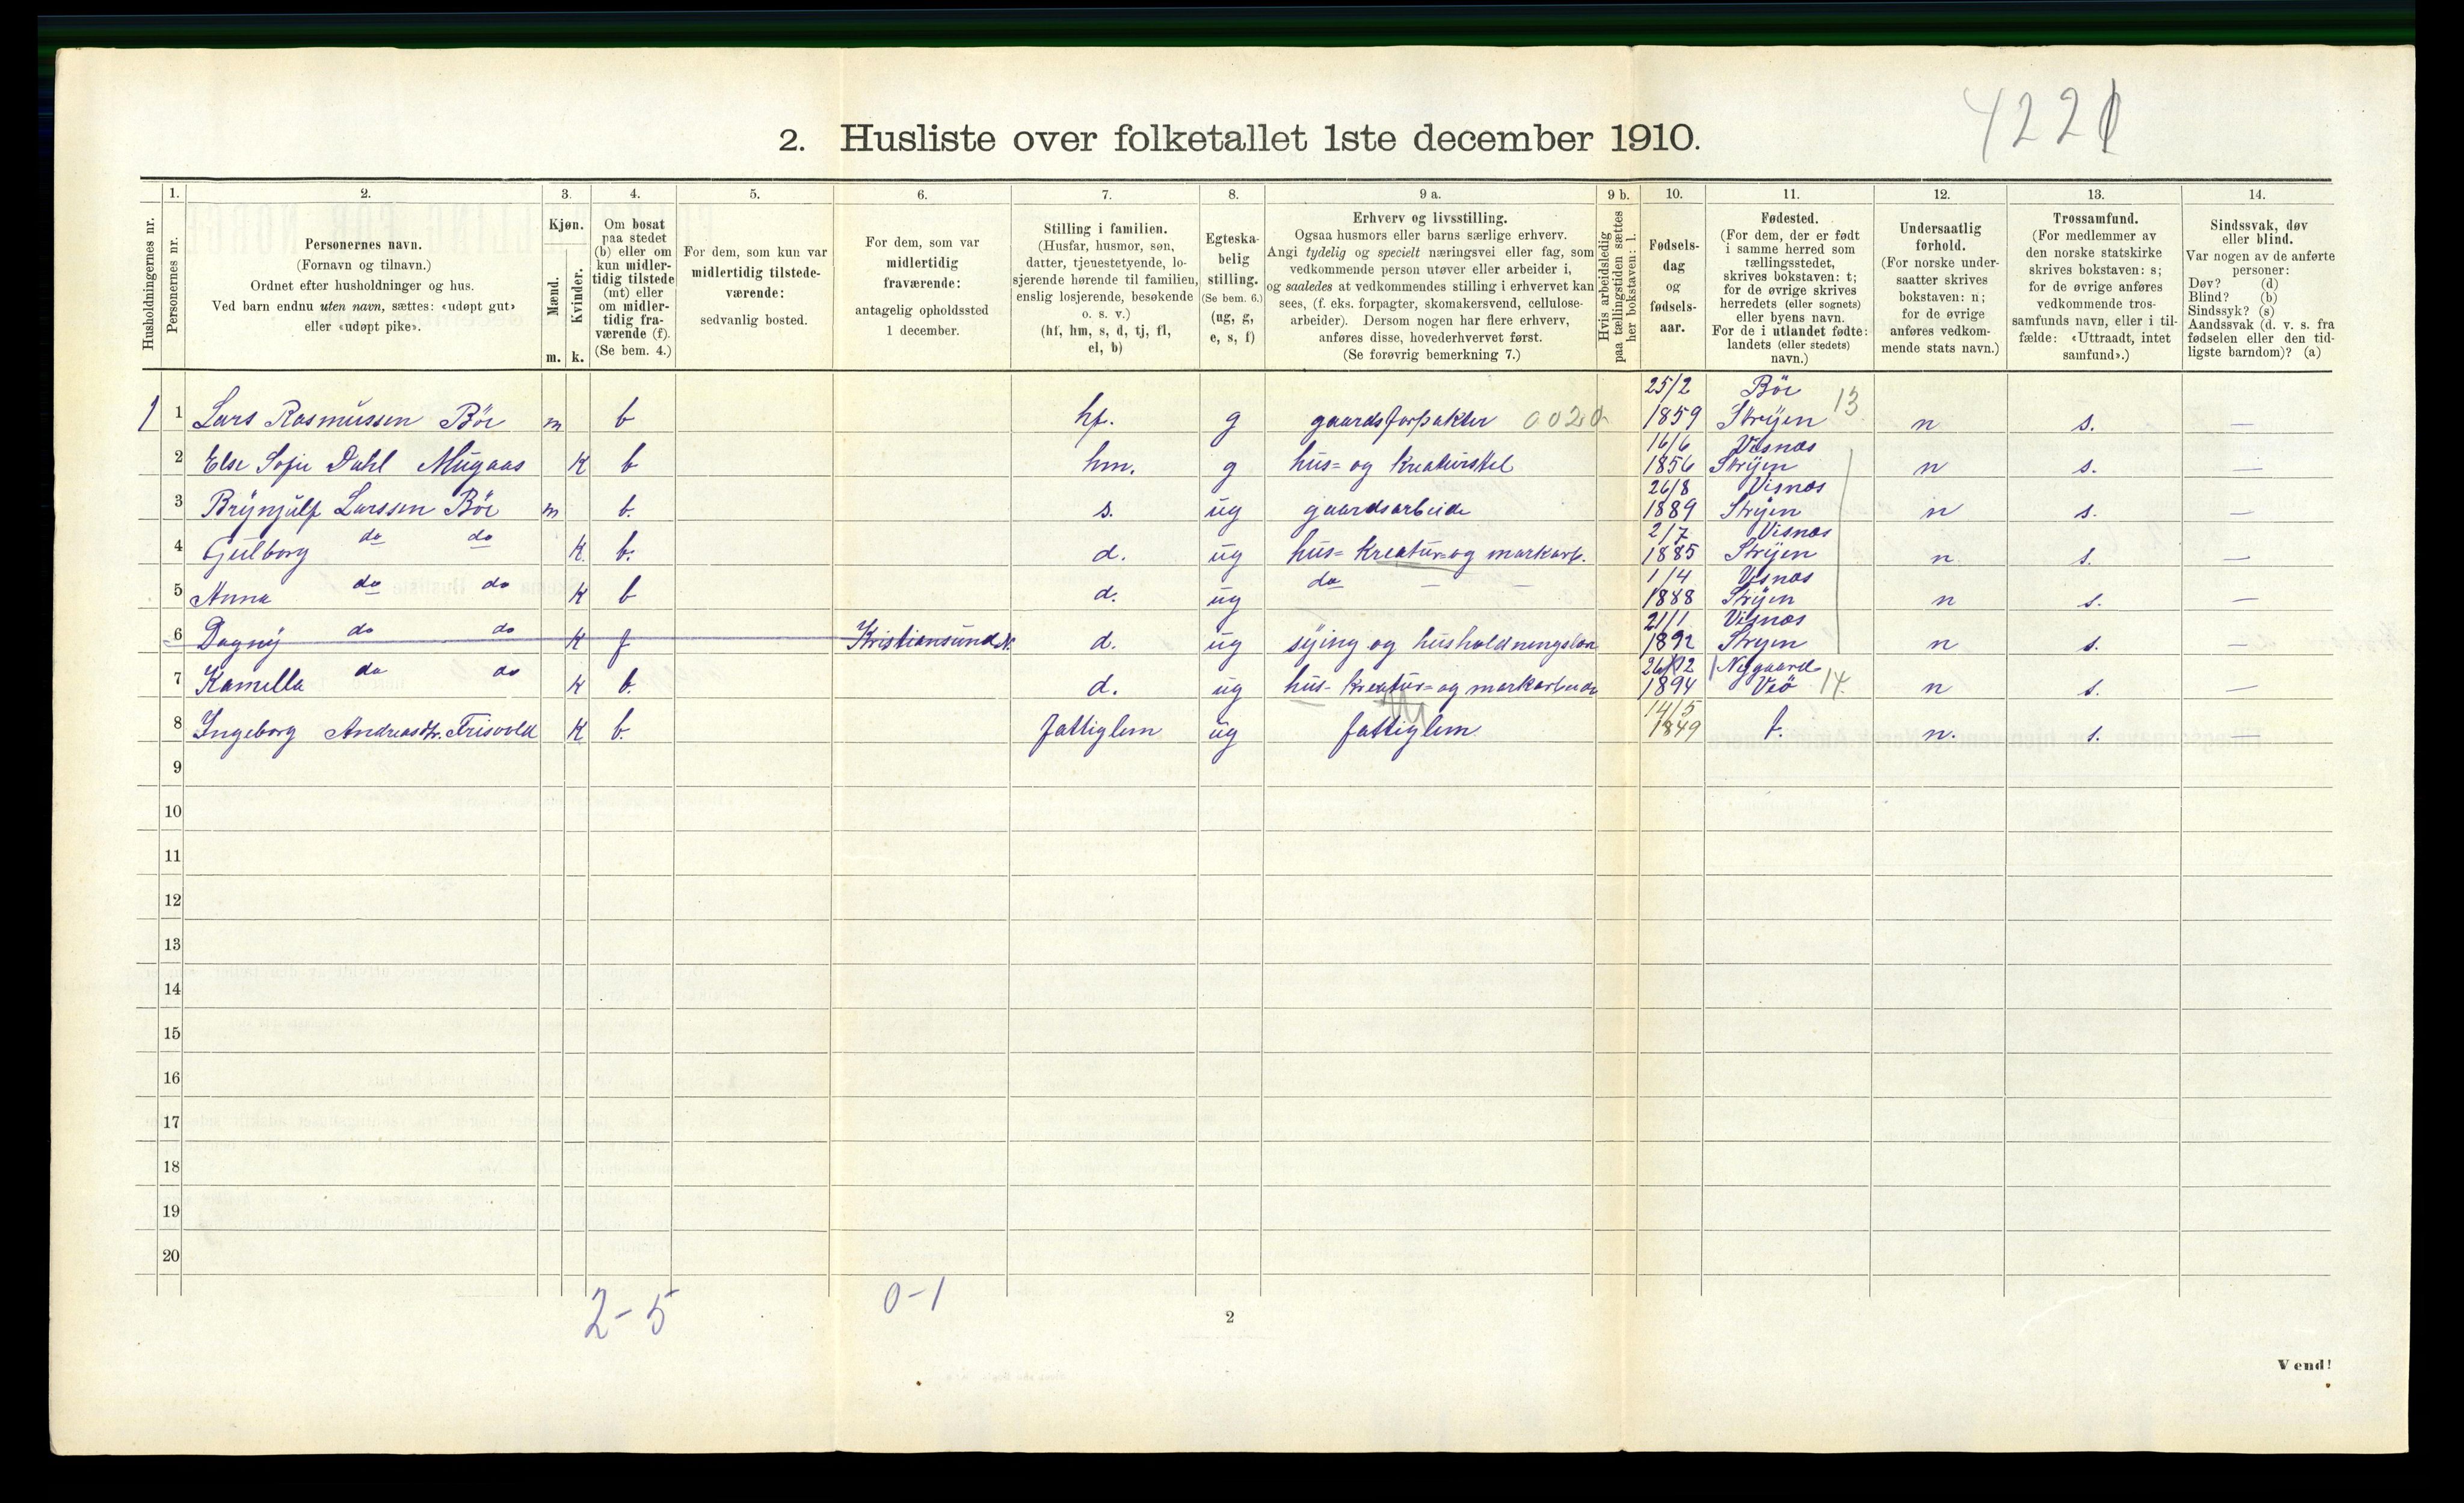 4221
2. Husliste over folketallet 1ste december 1910.
1. 2. 3. 4. 5. 6. 7. 8. 9 a. 9 b. 10. 11. 12. 13. 14.
Husholdningernes nr.
Personernes nr.
Personernes navn.
(Fornavn og tilnavn.)
Ordnet efter husholdninger og hus.
Ved barn endnu uten navn, sættes: «udøpt gut»
eller «udøpt pike».
Kjøn.
Mænd.
Kvinder.
m. k.
Om bosat
paa stedet
(b) eller om
kun midler-
tidig tilstede
(mt) eller
om midler-
tidig fra-
værende (f).
(Se bem. 4.)
For dem, som kun var
midlertidig tilstede-
værende:
sedvanlig bosted.
For dem, som var
midlertidig
fraværende:
antagelig opholdssted
1 december.
Stilling i familien.
(Husfar, husmor, søn,
datter, tjenestetyende, lo-
sjerende hørende til familien,
enslig losjerende, besøkende
o. s. v.)
(hf, hm, s, d, tj, fl,
el, b)
Egteska-
belig
stilling.
(Se bem. 6.)
(ug, g,
e, s, f)
Erhverv og livsstilling.
Ogsaa husmors eller barns særlige erhverv.
Angi tydelig og specielt næringsvei eller fag, som
vedkommende person utøver eller arbeider i,
og saaledes at vedkommendes stilling i erhvervet kan
sees, (f. eks. forpagter, skomakersvend, cellulose-
arbeider). Dersom nogen har flere erhverv,
anføres disse, hovederhvervet først.
(Se forøvrig bemerkning 7.)
Hvis arbeidsledig
paa tællingstiden sættes
her bokstaven: l.
Fødsels-
dag
og
fødsels-
aar.
Fødested.
(For dem, der er født
i samme herred som
tællingsstedet,
skrives bokstaven: t;
for de øvrige skrives
herredets (eller sognets)
eller byens navn.
For de i utlandet fødte:
landets (eller stedets)
navn.)
Undersaatlig
forhold.
(For norske under-
saatter skrives
bokstaven: n;
for de øvrige
anføres vedkom-
mende stats navn.)
Trossamfund.
(For medlemmer av
den norske statskirke
skrives bokstaven: s;
for de øvrige anføres
vedkommende tros-
samfunds navn, eller i til-
fælde: «Uttraadt, intet
samfund».)
Sindssvak, døv
eller blind.
Var nogen av de anførte
personer:
Døv? (d)
Blind? (b)
Sindssyk? (s)
Aandssvak (d. v. s. fra
fødselen eller den tid-
ligste barndom)? (a)
25/2 Böe 13
1 1 Lars Rasmussen Böe m b hf. g gaardsforpakter 0020 1859 Stryen n s. —
16/6 Visnæs
2 Else Sofie Dahl Mugaas K b hm. g hus- og kreaturstel 1856 Stryen n s. —
26/8 Visnæs
3 Brynjulf Larssen Böe m b. s. ug gaardsarbeide 1889 Stryen n s. —
2/7 Visnæs
4 Gulborg do do K. b. d. ug hus- kreatur- og markarb. 1885 Stryen n s. —
1/4 Visnæs
5 Anna do do K b d. ug do — — 1888 Stryen n s. —
21/1 Visnæs
6 Dagny do do K f Kristiansund N. d. ug sying og husholdningslære 1892 Stryen n s. —
26/12 Nygaard
7 Kamella do do K b. d. ug hus- kreatur- og markarbeide 1894 Veö 14. n s. —
14/5
8 Ingeborg Andreasdtr. Trisvold K b. fattiglem ug fattiglem 1849 t. n. s. —
9
10
11
12
13
14
15
16
17
18
19
20
2-5 0-1
2
Vend!